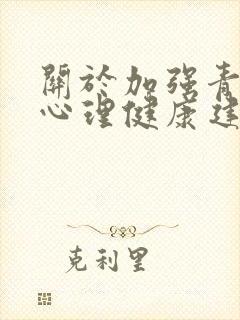 關於加强青
心理健康建
克利里